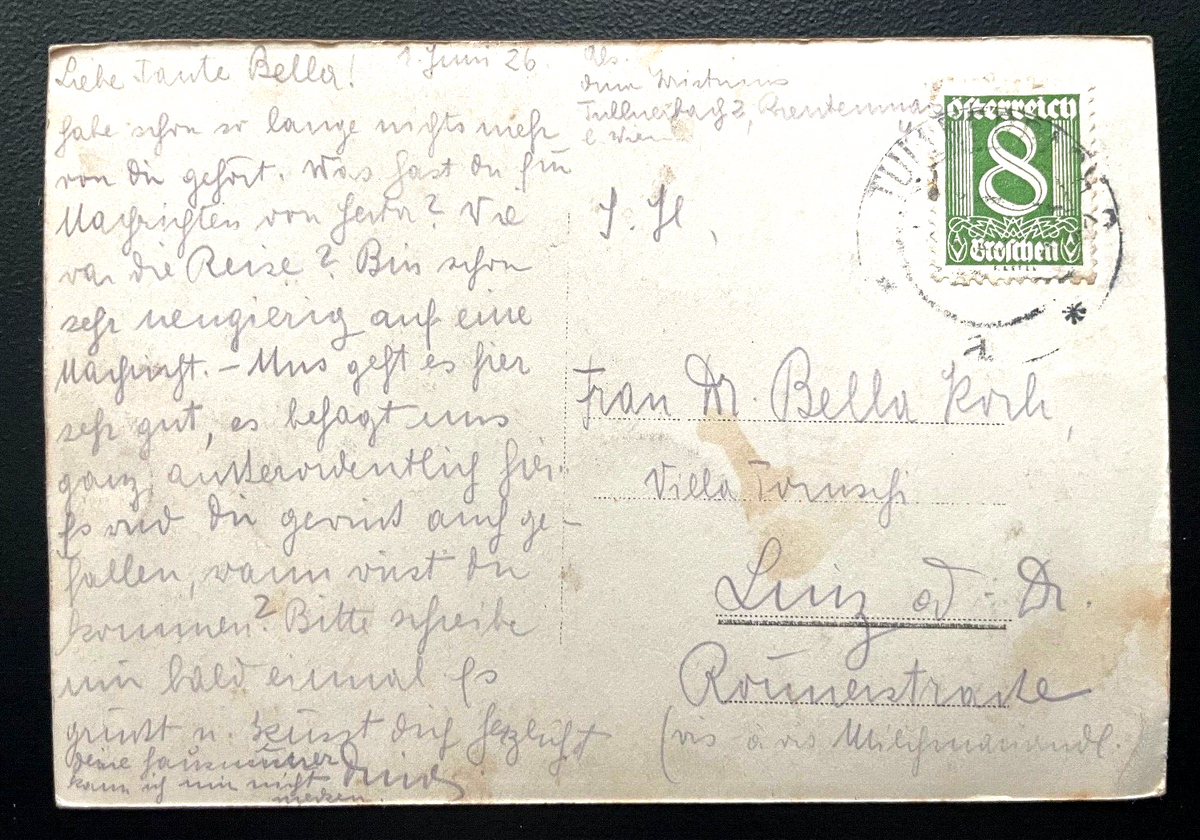 Liebe Tante Bella! 1. Juni 26.
habe schon so lange nichts mehr
von dir gehört. Was hast du für
Nachrichten von Herta? Wie
war die Reise? Bin schon
sehr neugierig auf eine
Nachricht. – Uns geht es hier
sehr gut, es behagt uns
ganz außerordentlich hier.
Es wird dir gewiß auch ge-
fallen, wann wirst du
kommen? Bitte schreibe
mir bald einmal Es
grüßt u. küsst dich herzlichst
deine
kann ich mir nicht
merken.
Abs.
Tullnerbach 2,
b. Wien
österreich
8
Groschen
Frau Dr. Bella Koch,
Villa
Linz a/d. Dr.
(vis à vis